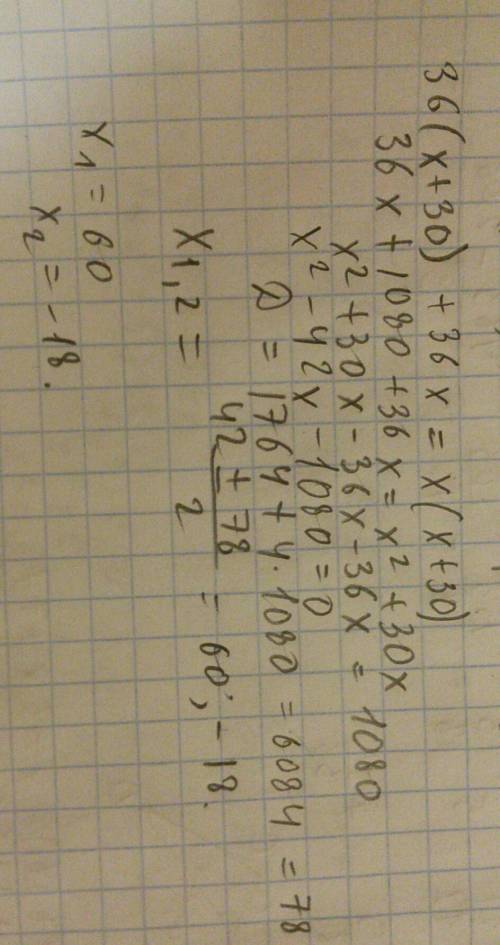 36(x+30) + 36x = x(x+30)
36x + 1080 + 36x = x² + 30x
x² + 30x - 36x - 36x = 1080
x² - 42x - 1080 = 0
D = 1764 + 4·1080 = 6084 = 78
x1,2 = (42 ± 78)/2 = 60; -18.
x1 = 60
x2 = -18.